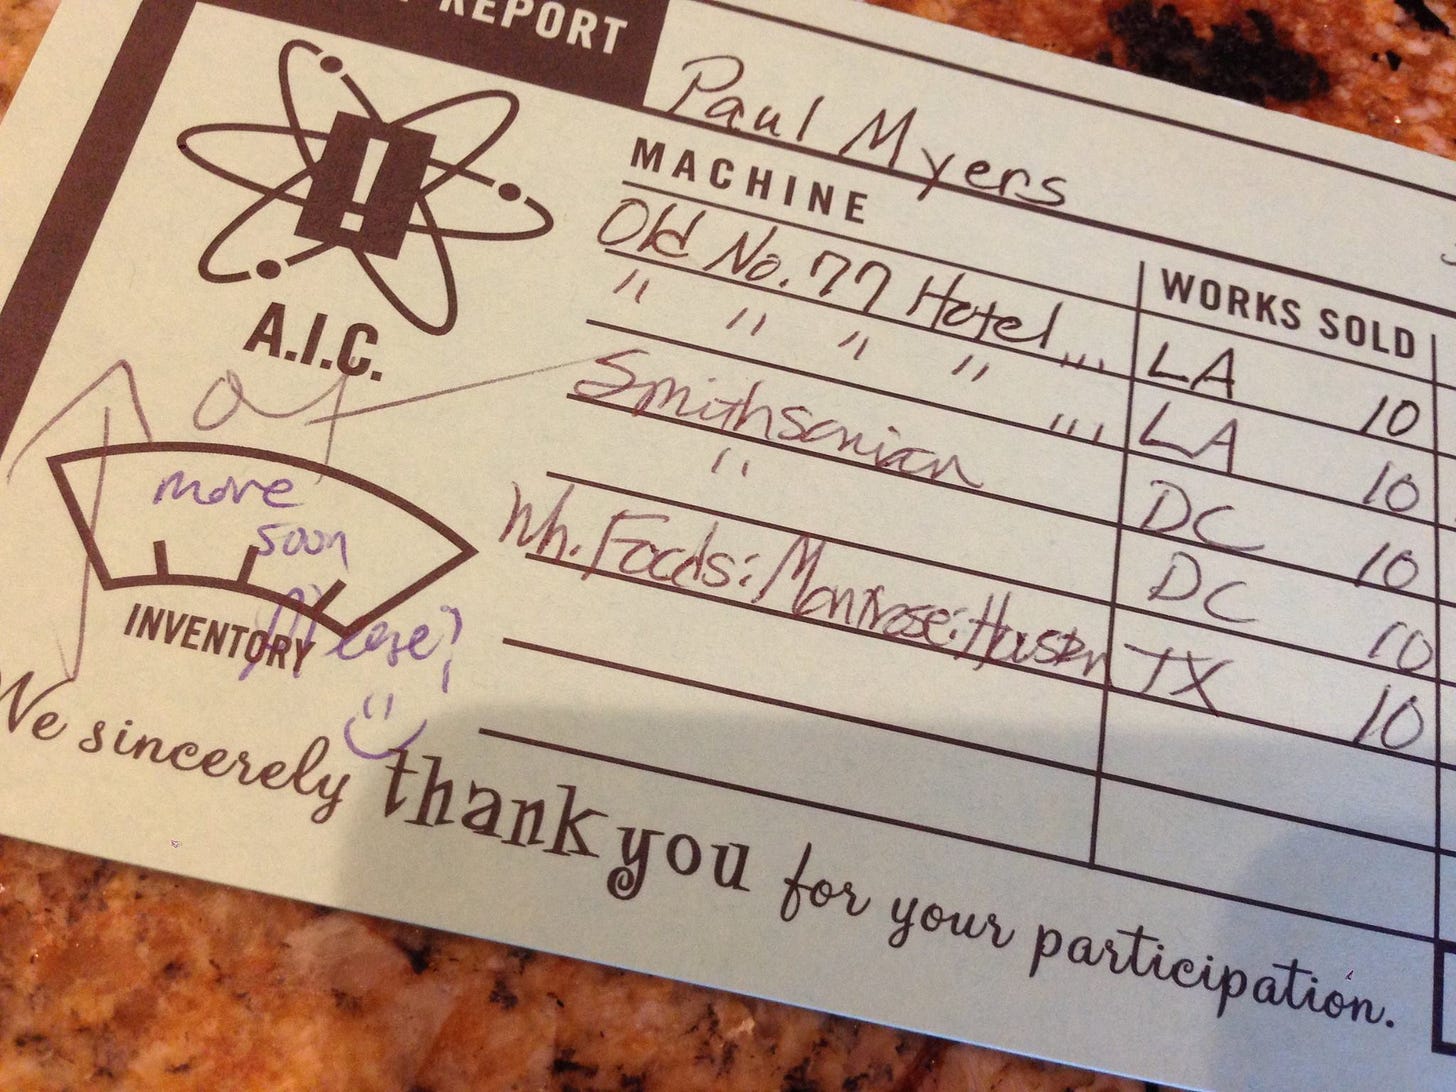 REPORT
Paul Myers
MACHINE
WORKS SOLD
Old No. 77 Hotel ,,, LA 10
" " " " ,,, LA 10
Smithsonian DC 10
" DC 10
Wh. Foods: Montrose: Houston TX 10
!
A.I.C.
more
soon
Please?
INVENTORY
We sincerely thank you for your participation.